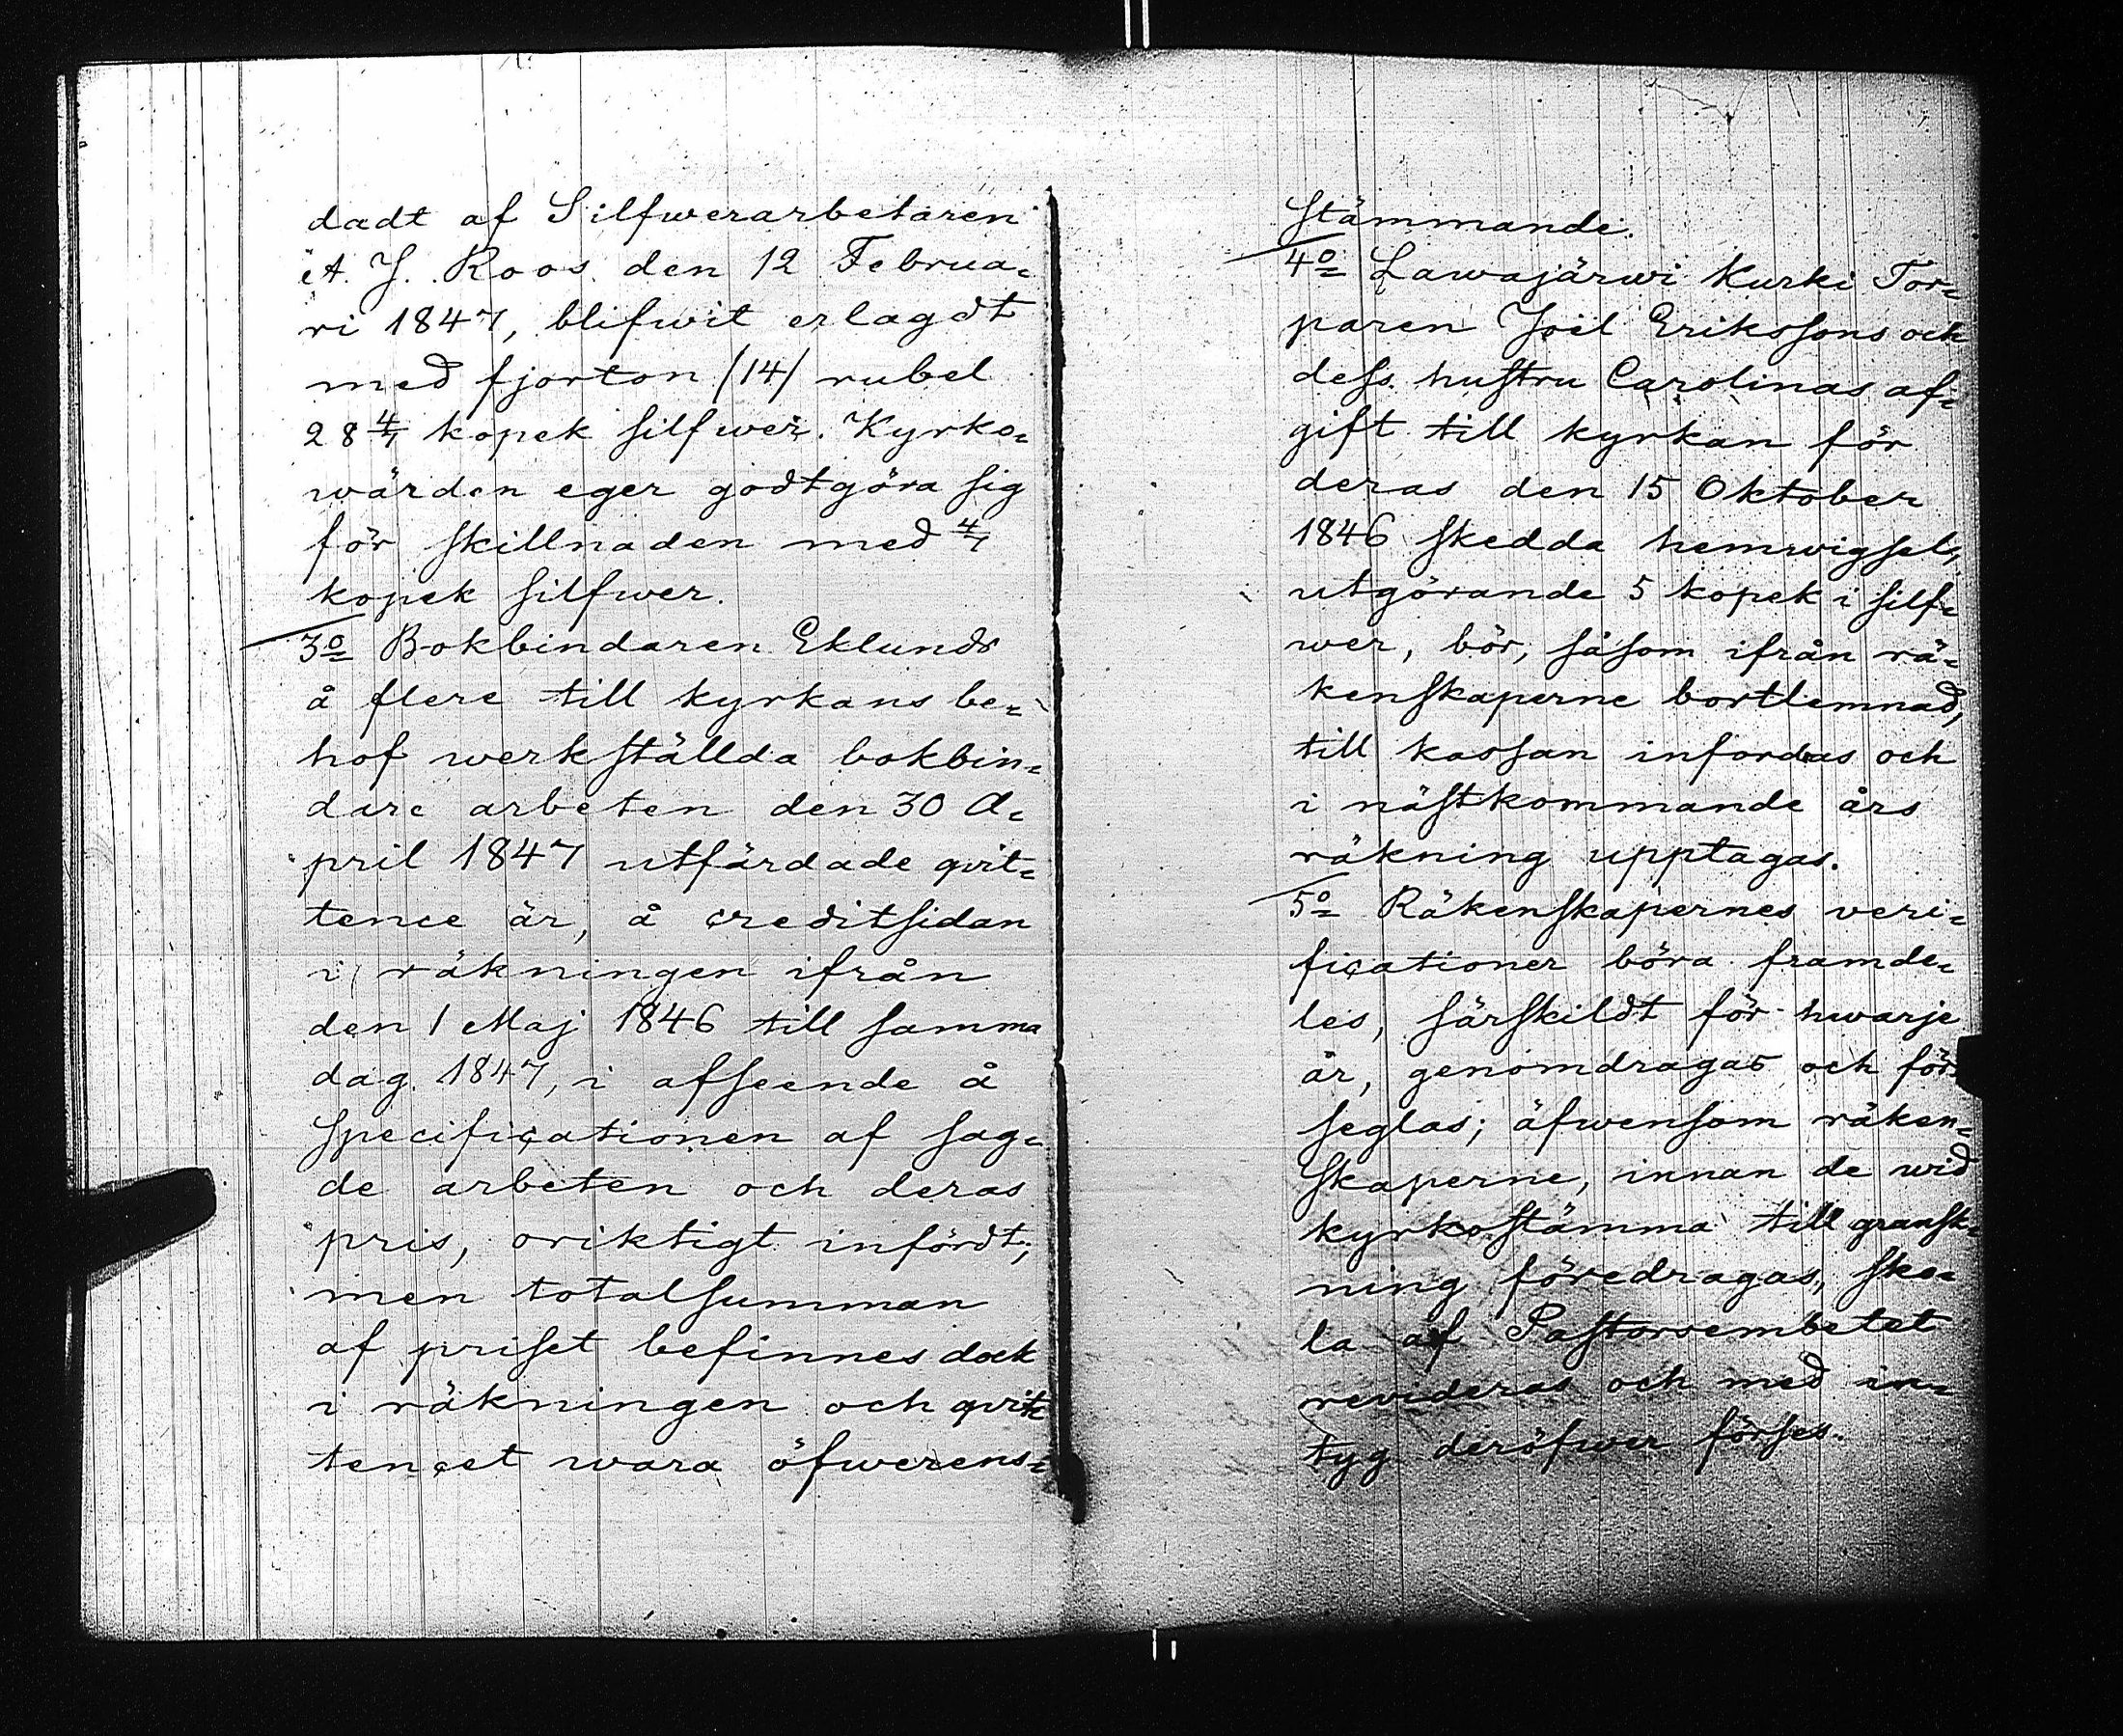 dadt af Silfwerarbetaren
A. J. Roos den 12 Februa-
ri 1847, blifwit erlagdt
med fjorton /14/ rubel
28 4/7 kopek silfwer. Kyrko-
wärden eger godtgöra sig
för skillnaden med 4/7
kopek silfwer.
3o Bokbindaren Eklunds
å flere till kyrkans be-
hof werkställda bokbin-
dare arbeten den 30 A-
pril 1847 utfärdade qvit-
tence är, å creditsidan
i räkningen ifrån
den 1 Maj 1846 till samma
dag 1847, i afseende å
specificationen af sag-
de arbeten och deras
pris, oriktigt infördt;
men totalsumman
af priset befinnes dock
i räkningen och qvit-
tencet wara öfwerens-
stämmande.
4o Lawajärwi Kurki Tor-
paren Joël Erikssons och
dess hustru Carolinas af-
gift till kyrkan för
deras den 15 Oktober
1846 skedda hemwigsel,
utgörande 5 kopek i silf-
wer, bör, såsom ifrån rä-
kenskaperne bortlemnad,
till kassan infordras och
i nästkommande års
räkning upptagas.
5o Räkenskapernes veri-
ficationer böra framde-
les, särskildt för hwarje
år, genomdragas och för-
seglas; äfwensom räken-
skaperne, innan de wid
kyrkostämma till gransk-
ning föredragas, sko-
la af Pastorsembetet
revideras och med in-
tyg deröfwer förses.